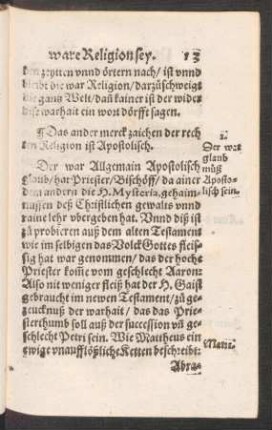 ware Religion sey. 13
den zeytten vnnd örtern nach/ ist vnnd
bleibt die war Religion/ darzů schweigt
die gantz Welt/ dañ kainer ist der wider
dise warhait ein wort dörfft sagen.
¶ Das ander merckzaichen der rech
ten Religion ist Apostolisch.
2.
Der war
glaub
můß
Aposto-
lisch sein.
Der war Allgemain Apostolisch
glaub/ hat Priester/ Bischöff/ da ainer
dem andern die H. Mysteria, gehaim
nussen deß Christlichen gewalts vnnd
raine lehr vbergeben hat. Vnnd diß ist
zů probieren auß dem alten Testament
wie im selbigen das Volck Gottes fleis-
sig hat war genommen/ das der hoche
Priester kom̄e vom geschlecht Aaron:
Also nit weniger fleiß hat der H. Gaist
gebraucht im newen Testament/ zů ge-
zeucknuß der warhait/ das das Prie-
sterthumb soll auß der succession vñ ge-
schlecht Petri sein. Wie Mattheus ein
ewige vnaufflößliche Ketten beschreibt:
Matt. 1.
Abra-